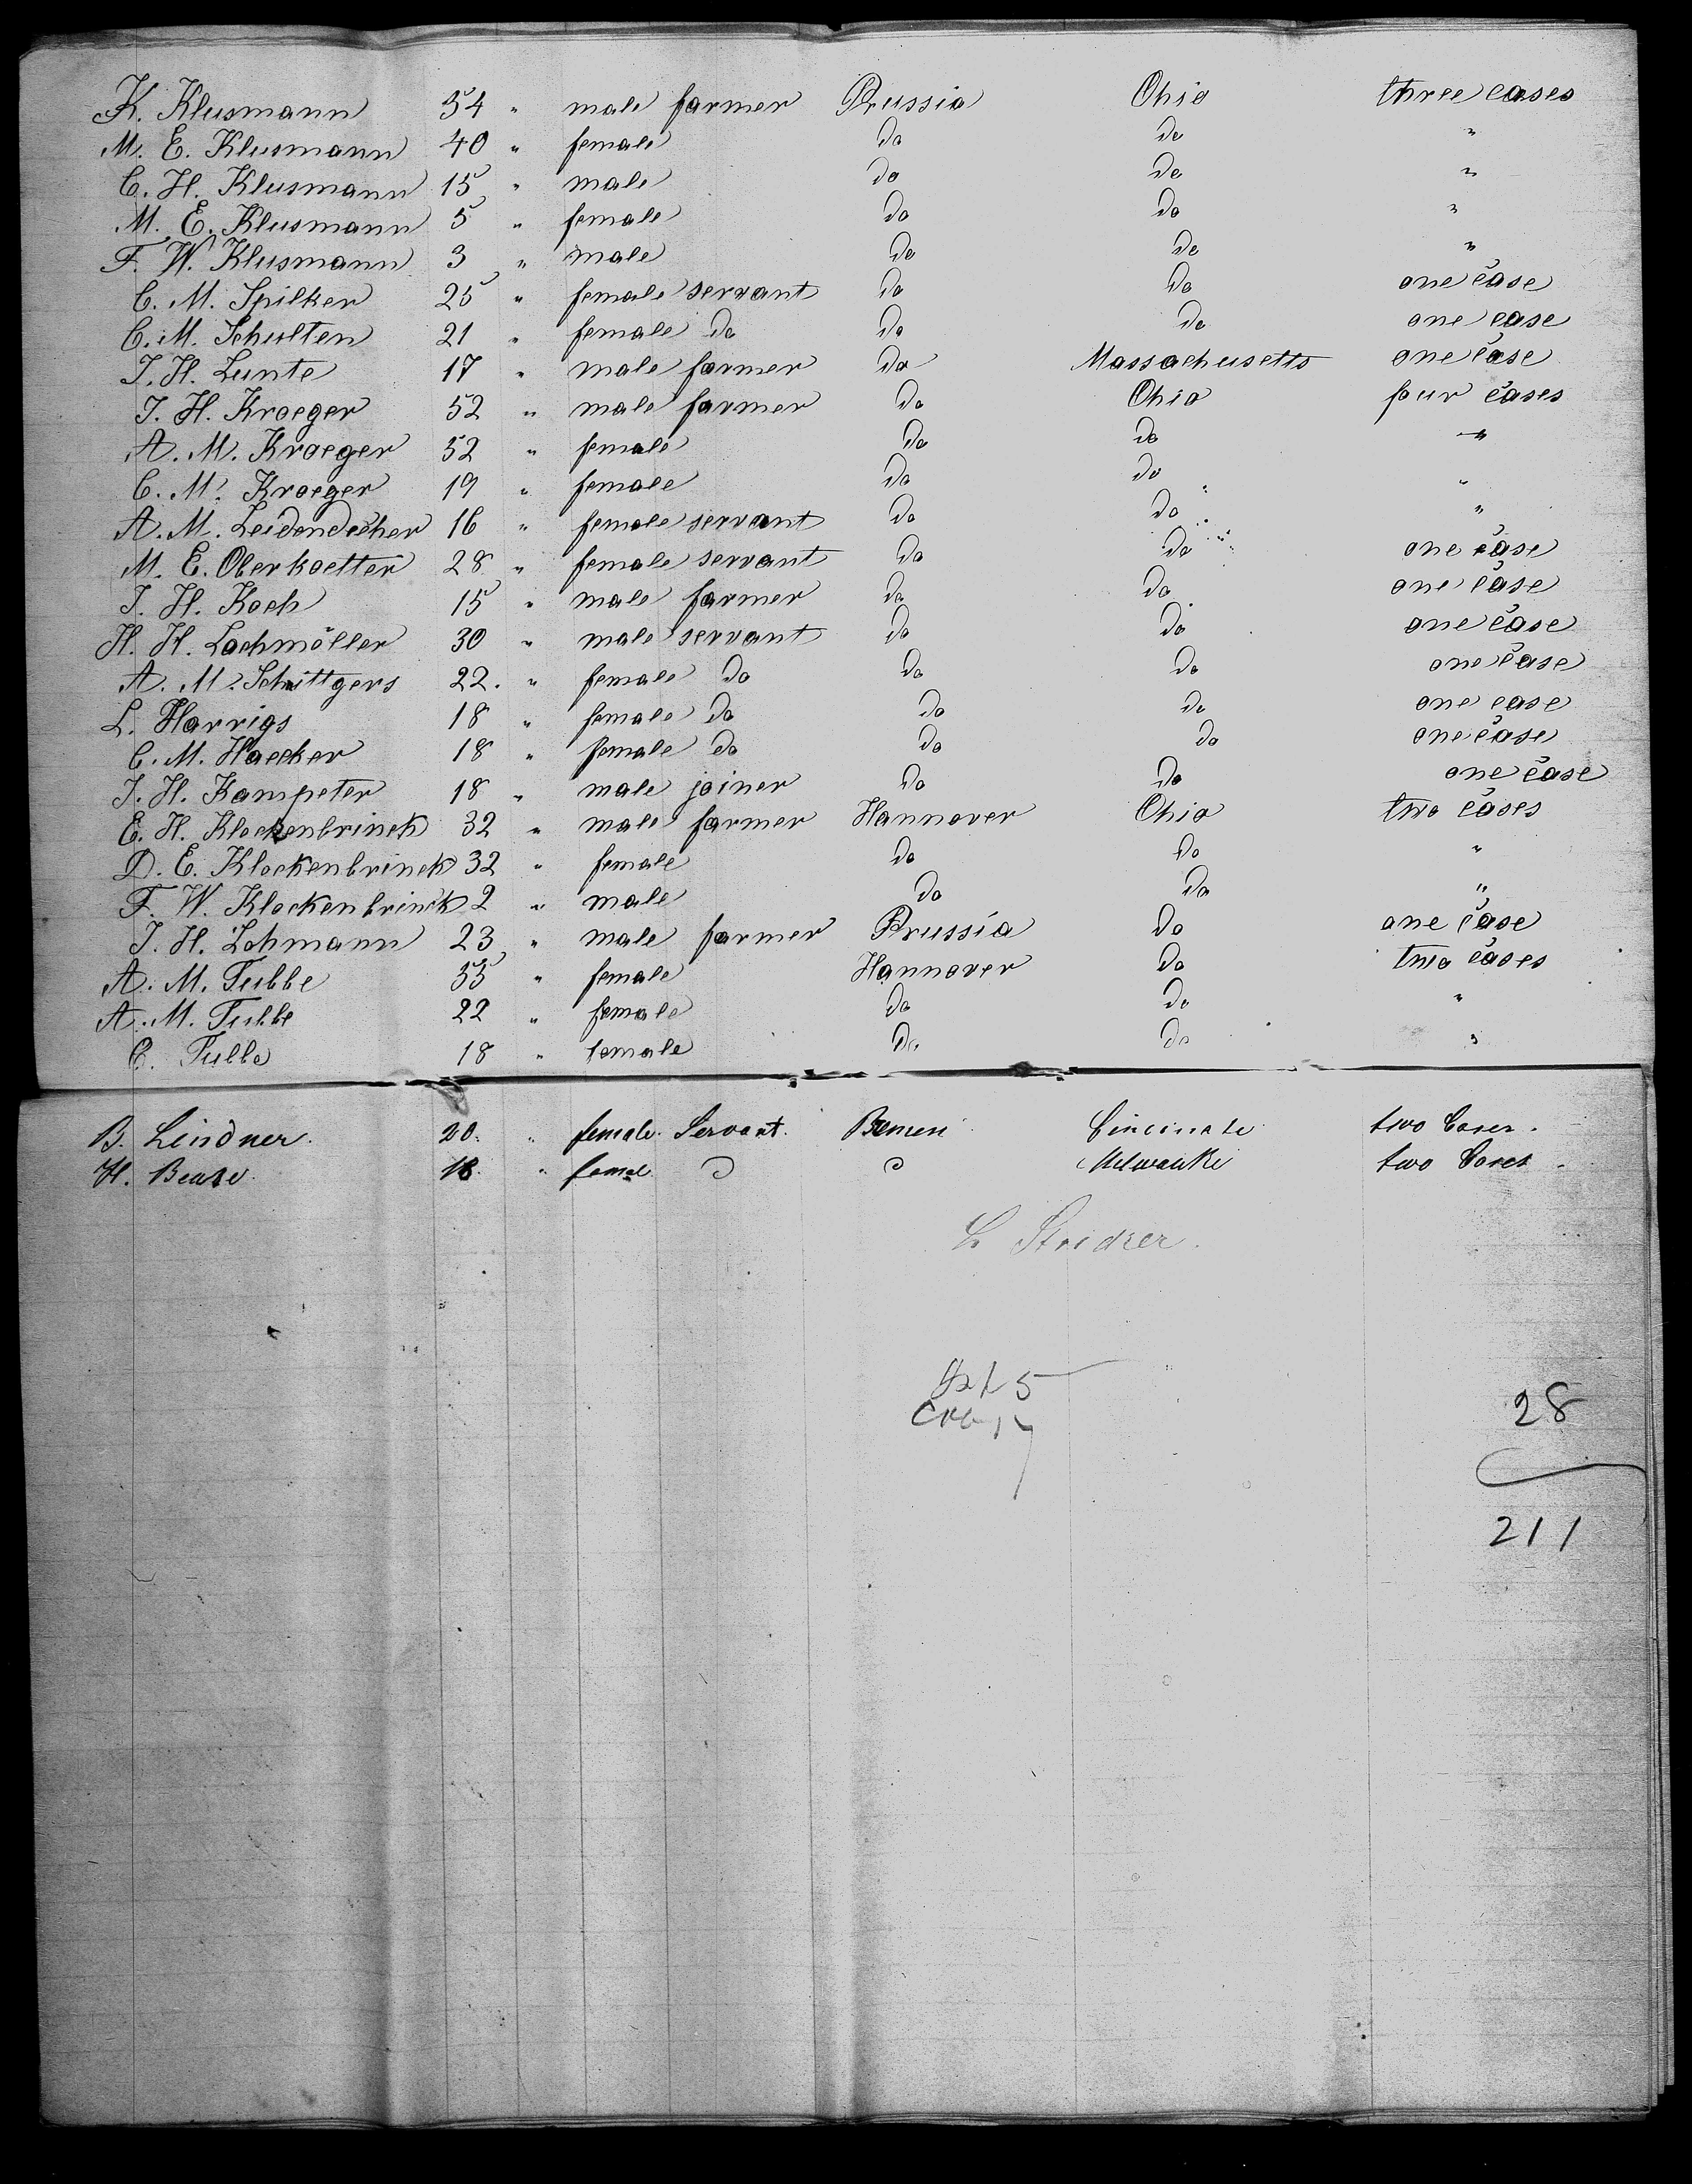 K. Klusmann 54 " male farmer Prussia Ohio three cases
M. E. Klusmann 40 " female do do "
C. H. Klusmann 15 " male do do "
M. E. Klusmann 5 " female do do "
F. W. Klusmann 3 " male do do "
C. M. Spilker 25 " female servant do do one case
C. M. Schulten 21 " female do do do one case
J. H. Lunte 17 " male farmer do Massachusetts one case
J. H. Kroeger 52 " male farmer do Ohio four cases
A. M. Kroeger 52 " female do do "
C. M. Kroeger 19 " female do do "
A. M. 16 " female servant do do "
M. E. Oberkoetter 28 " female servant do do one case
J. H. Koch 15 " male farmer do do one case
H. H. Lochmöller 30 " male servant do do one case
A. M. Schüttgers 22. " female do do do one case
L. Harrigs 18 " female do do do one case
C. M. Haecker 18 " female do do do one case
J. H. Kampeter 18 " male joiner do do one case
E. H. Klockenbrinck 32 " male farmer Hannover Ohio two cases
D. E. Klockenbrinck 32 " female do do "
F. W. Klockenbrinck 2 " male do do "
J. H. Lohmann 23 " male farmer Prussia do one case
A. M. Tubbe 55 " female Hannover do two cases
A. M. Tubbe 22 " female do do "
C. Tubbe 18 " female do do "
B. Lindner. 20. " female. Servant. Bremen Cincinate two Cases.
H. 18. " femal Milwauke two Cases.
28
211